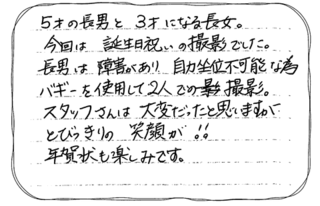 5才の長男と3才になる長女。
今回は誕生日祝いの撮影でした。
長男は障害があり自力坐位不可能な為
バギーを使用して2人での撮影。
スタッフさんは大変だったと思いますが
とびっきりの笑顔が!!
年賀状も楽しみです。